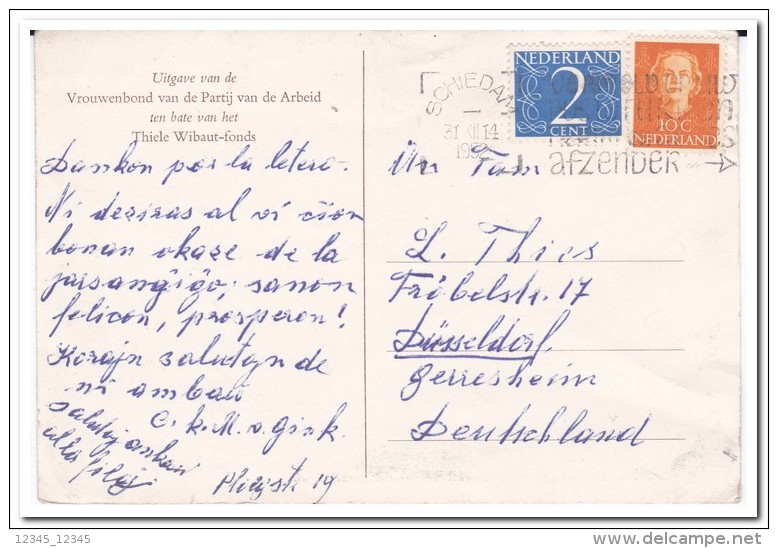 Uitgave van de
Vrouwenbond van de Partij van de Arbeid
ten bate van het
Thiele Wibaut-fonds
Dankon por la letero.
Ni deziras al vi ĉion
bonan okaze de la
jarŝanĝiĝo: sanon
felicon, prosperon!
Korajn salutojn de
ni ambaŭ
C. k. M. v. Gink.
salutoj ankaŭ
alla filoj.
19
NEDERLAND
2
CENT
10 C
NEDERLAND
SCHIEDAM
31 XII 14
195
afzender
An Fam
L. Thies
Fröbelstr. 17
Düsseldorf
Gerresheim
Deutschland
12345_12345